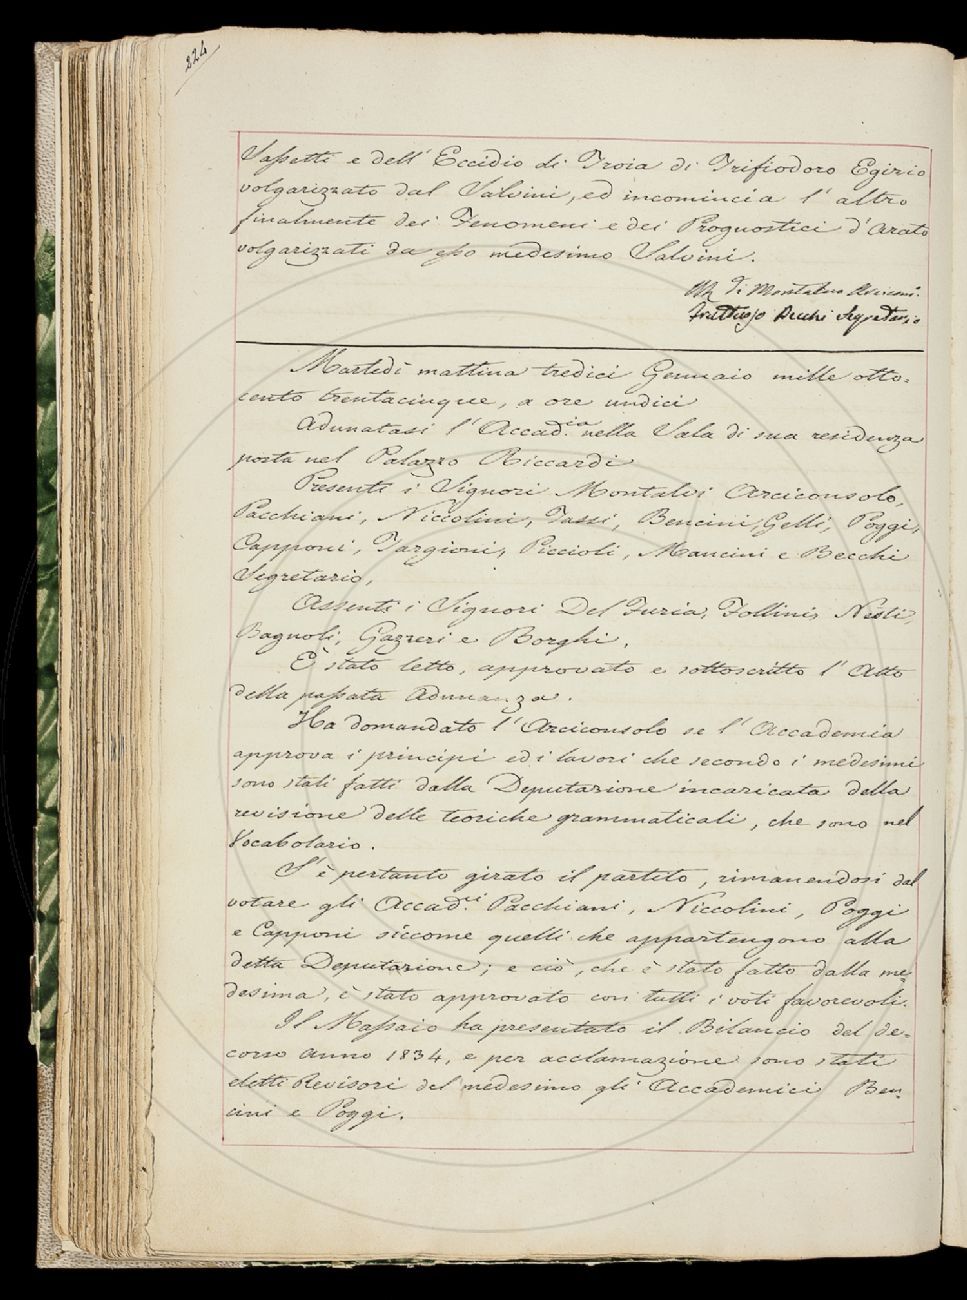 224
Sassetti e dell' Eccidio di Troia di Trifiodoro Egizio
volgarizzato dal Salvini, ed incomincia l' altro
finalmente dei Fenomeni e dei Prognostici d' Arato
volgarizzati da esso medesimo Salvini.
di Montalvo Arcicons.
Fruttuoso Becchi Segretario
Martedì mattina tredici Gennaio mille otto=
cento trentacinque, a ore undici
Adunatasi l' Accad.ia nella Sala di sua residenza
posta nel Palazzo Riccardi
Presenti i Signori Montalvi Arciconsolo,
Pacchiani, Niccolini, Tassi, Bencini, Gelli, Poggi,
Capponi, Targioni, Piccioli, Mancini e Becchi
Segretario,
Assenti i Signori Del Furia, Follini, Nesti,
Bagnoli, Gazzeri e Borghi.
È stato letto, approvato e sottoscritto l' Atto
della passata Adunanza.
Ha domandato l' Arciconsolo se l' Accademia
approva i principi ed i lavori che secondo i medesimi
sono stati fatti dalla Deputazione incaricata della
revisione delle teoriche grammaticali, che sono nel
Vocabolario.
S' è pertanto girato il partito, rimanendosi dal
votare gli Accad.ci Pacchiani, Niccolini, Poggi
e Capponi siccome quelli che appartengono alla
detta Deputazione; e ciò, che è stato fatto dalla me=
desima, è stato approvato con tutti i voti favorevoli.
Il Massaio ha presentato il Bilancio del de=
corso anno 1834, e per acclamazione sono stati
eletti Revisori del medesimo gli Accademici Ben=
cini e Poggi.